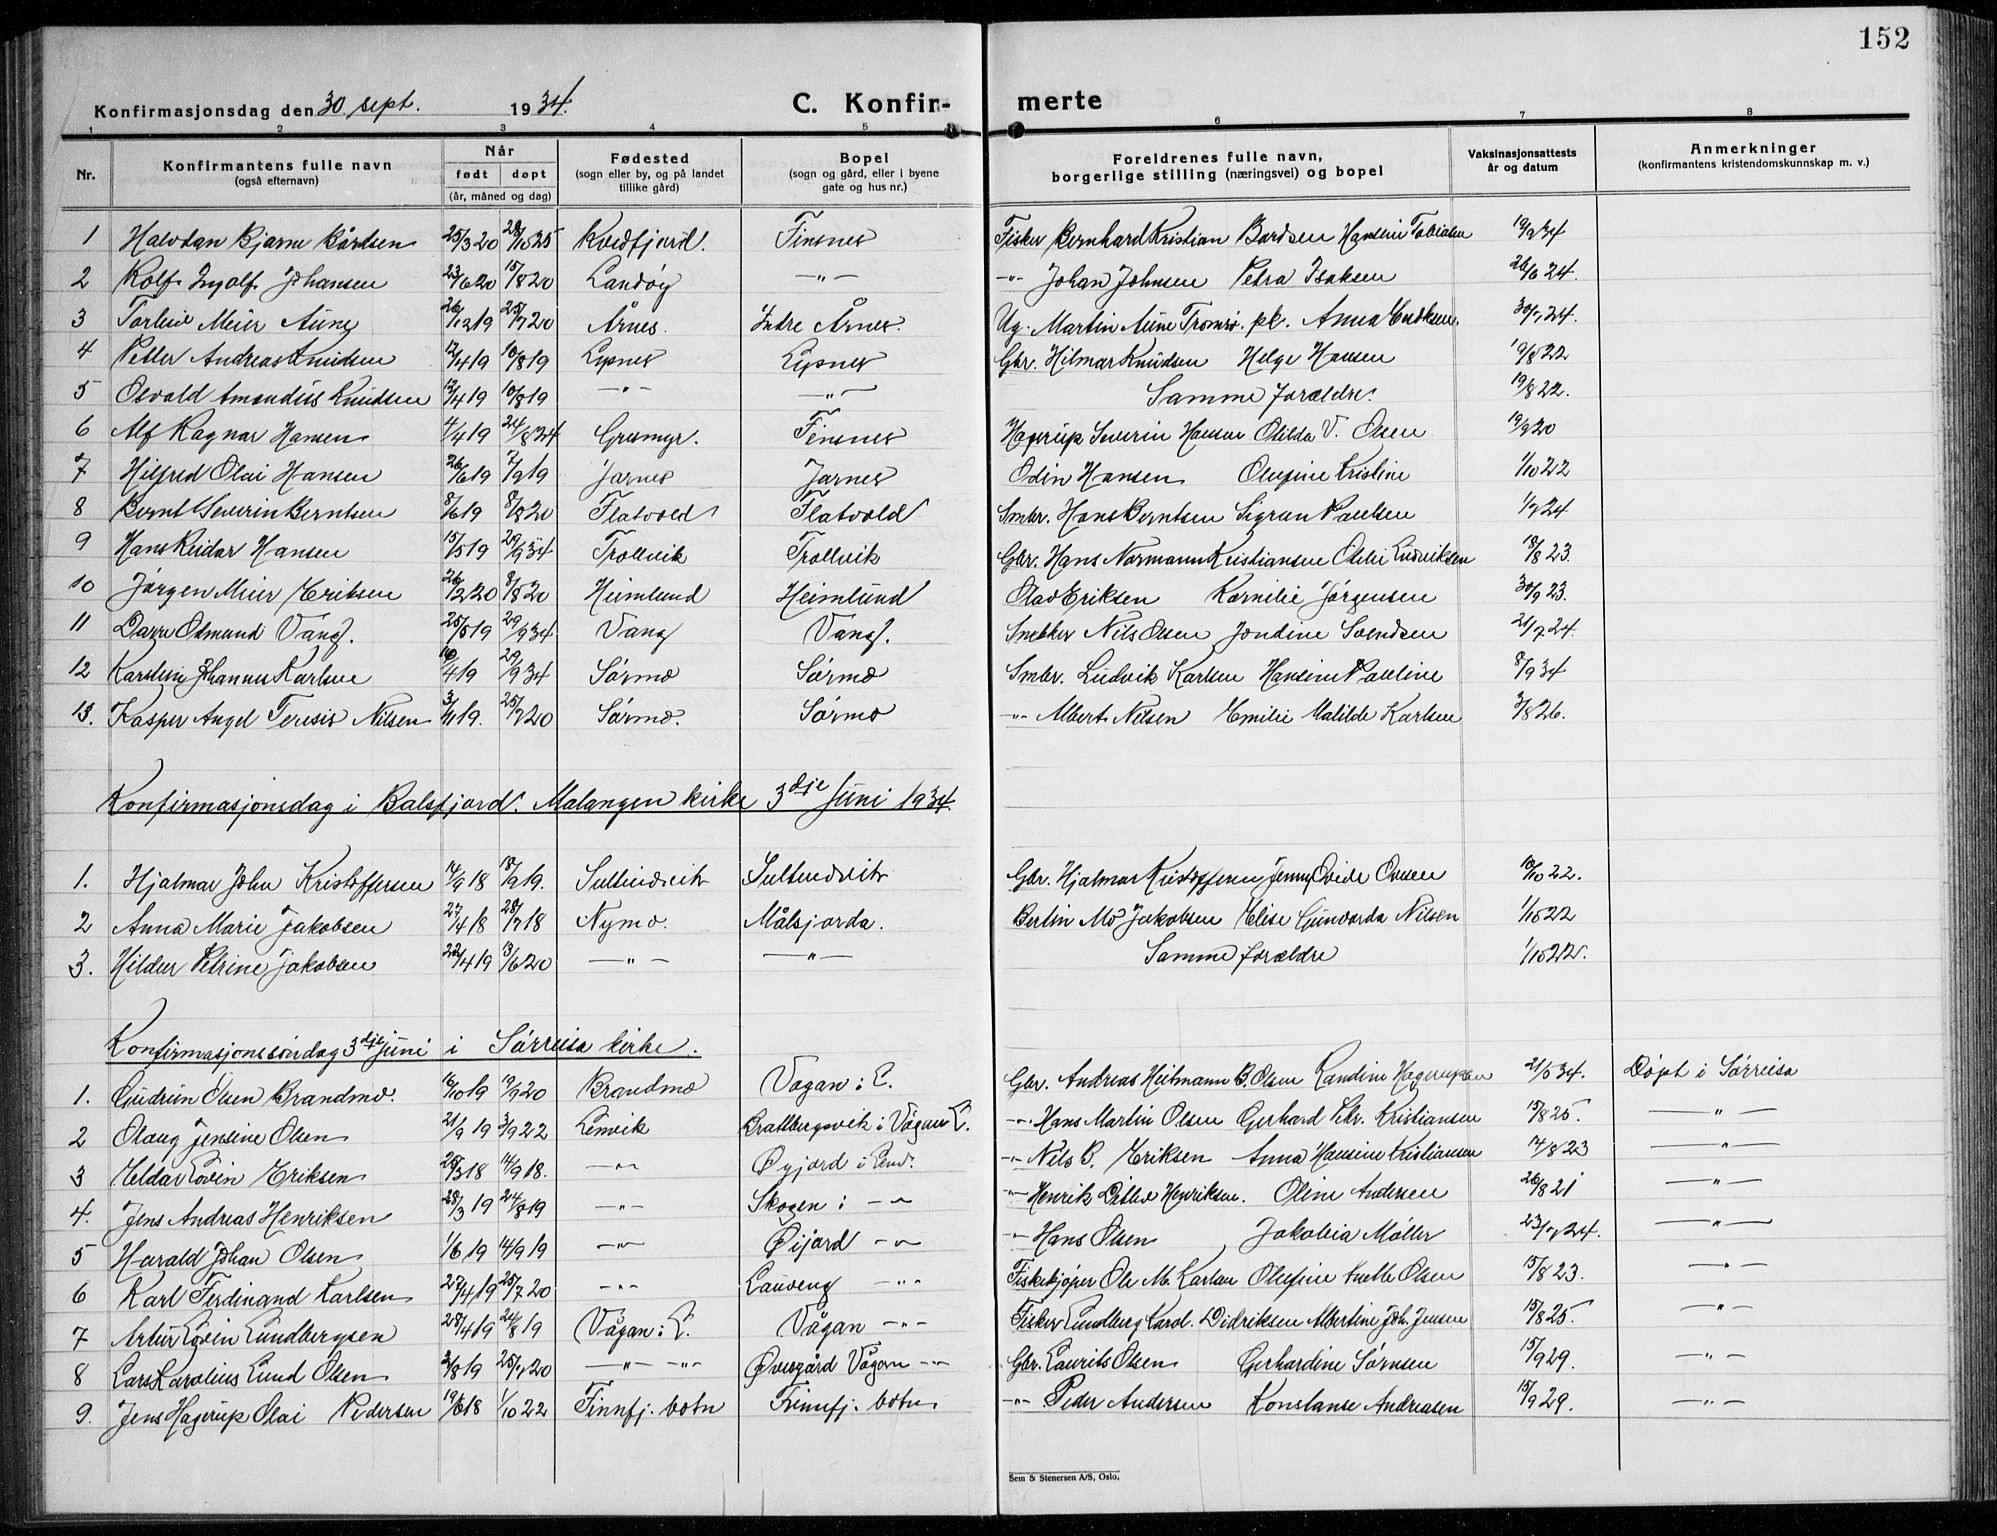 152
Konfirmasjonsdag den 30 sept. 1934. C. Konfir- merte
1 2 3 4 5 6 7 8
Nr. Konfirmantens fulle navn (også efternavn) Når født døpt (år, måned og dag) Fødested (sogn eller by, og på landet tillike gård) Bopel (sogn og gård, eller i byene gate og hus nr.) Foreldrenes fulle navn, borgerlige stilling (næringsvei) og bopel Vaksinasjonsattests år og datum Anmerkninger (konfirmantens kristendomskunnskap m. v.)
1 Halvdan Bjarne Bårdsen 25/3 20 28/10 25 Kvedfjord. Finsnes Fisker Bernhard Kristian Bardsen Hansine Tobiasen 19/9 34
2 Rolf Ingolf Johansen 23/6 20 15/8 20 Landøy -"- -"- Johan Johnsen Petra Isaksen 26/6 24.
3 Torleif Meier Aune 26/12 19 25/7 20 Årnes. Indre Årnes. Ug. Martin Aune Tromsø. pl. Anna Eriksen. 30/7 24.
4 Petter Andreas Knudsen 12/4 19 10/8 19 Lysnes Lysnes Gbr. Hilmar Knudsen Helge Hansen 19/8 22
5 Osvald Amandus Knudsen 12/4 19 10/8 19 -"- -"- Samme forældre. 19/8 22.
6 Alf Ragnar Hansen 4/4 19 24/8 24 Grasmyr. Finsnes Hagerup Severin Hansen Otilda V. Olsen 19/9 20
7 Hilfred Olai Hansen 26/6 19 7/9 19 Jarnes Jarnes Odin Hansen Olufine Kristine 1/10 22
8 Bernt Severin Berntsen 8/6 19 8/8 20 Flatvold Flatvold Smbr. Hans Berntsen Sigrun Paulsen 1/9 24
9 Hans Reidar Hansen 15/5 19 29/9 34 Trollvik Trollvik Gbr. Hans Normann Kristiansen Otelie Ludviksen 18/8 23.
10 Jørgen Meier Eriksen 26/2 20 8/8 20 Heimlund Heimlund Olav Eriksen Kornilie Jørgensen 30/9 23.
11 Osmund Vang. 25/5 19 29/9 34 Vang Vang. Snekker Nils Olsen Jondine Svendsen 21/7 24.
12 Karstein Johannes Karlsen 16/4 19 29/9 34 Sørmo Sørmo Smbr. Ludvik Karlsen Hansine Pauline 8/9 34
13. Kasper Angel Teresis Nilsen 3/11 19. 25/7 20 Sørmo. Sørmo -"- Albert Nilsen Emilie Matilde Karlsen 3/8 26.
Konfirmasjonsdag i Balsfjord. Malangen kirke 3dje Juni 1934.
1. Hjalmar John Kristoffersen 14/9 18 18/9 19. Sultindvik Sultindvik Gbr. Hjalmar Kristoffersen Jenny Ovide Ovesen 10/10 22.
2 Anna Marie Jakobsen 27/4 18 28/7 18 Nymo. Målsjorda. Bertin Mo Jakobsen Elise Gunvarda Nilsen 1/10 22
3. Hildur Petrine Jakobsen 22/4 19 13/6 20 -"- -"- Samme forældre 1/10 22.
Konfirmasjonssøndag 3dje juni i Sørreisa kirke.
1. Gudrun Olsen Brandmo. 16/10 19 19/9 20 Brandmo Vågan i L. Gbr. Andreas Heitmann B. Olsen Randine Hagerupsen 21/5 34. Døpt i Sørreisa
2 Olaug Jensine Olsen 21/9 19 3/9 22 Lenvik Brattbergsvik i Vågan L. -"- Hans Martin Olsen Gerhard Petr. Kristiansen 15/8 25. -"-
3 Heldar Edvin Eriksen 25/3 18 14/9 18. -"- Øyjord i Lend. -"- Nils B. Eriksen Anna Hansine Kristiansen 14/8 23 -"-
4. Jens Andreas Henriksen 28/3 19 24/8 19 -"- Skogen i -"- -"- Henrik Ditlev Henriksen. Oline Andersen 26/8 21 -"-
5 Harald Johan Olsen 1/6 19 14/9 19 -"- Øijord -"- -"- Hans Olsen Jakobia Møller 23/7 24. -"-
6 Karl Ferdinand Karlsen 27/4 19 25/7 20 -"- Lauveng -"- Fiskekjøper Ole M. Karlsen Olufine Anette Olsen 15/8 23. -"-
7 Artur Edvin Lundbergsen 28/4 19 24/8 19 Vågan i L. Vågan -"- Fisker Lundberg Karol. Didriksen Albertine Joh. Jensen 15/8 25. -"-
8 Lars Karolius Lund Olsen 3/8 19 25/7 20 -"- -"- Øvergård Vågan -"- Gbr. Laurits Olsen Gerhardine Sørnsen 15/9 29. -"-
9. Jens Hagerup Olai Pedersen 19/6 18 1/10 22 Finnfj. botn Finnfj. botn -"- Peder Andersen Konstanse Andreasen 15/9 29. -"-
Sem & Stenersen A/S, Oslo.